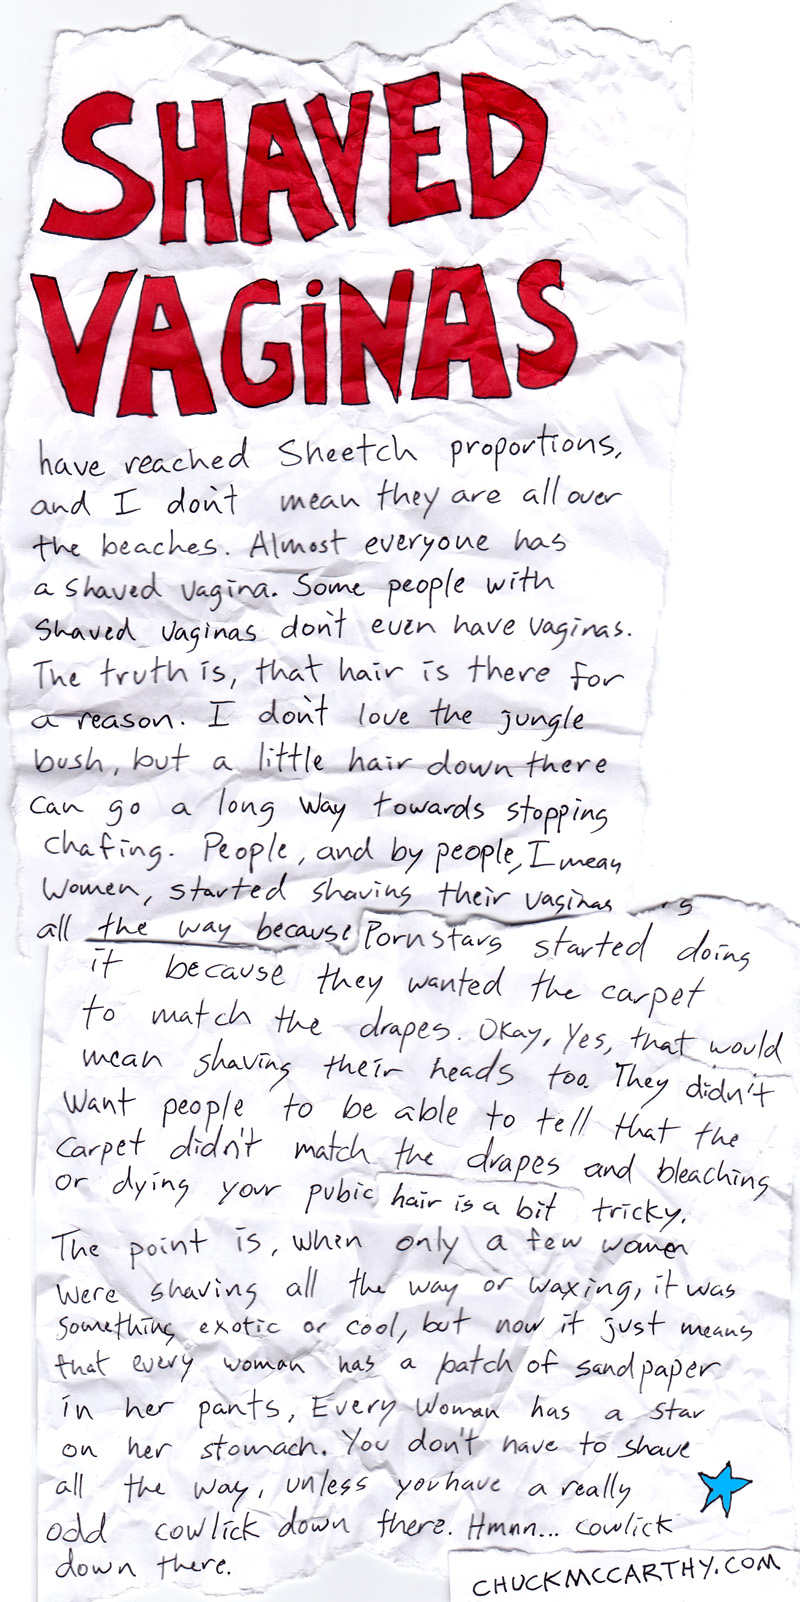 SHAVED
VAGiNAS
have reached Sneetch proportions,
and I don't mean they are all over
the beaches. Almost everyone has
a shaved vagina. Some people with
shaved vaginas don't even have vaginas.
The truth is, that hair is there for
a reason. I don't love the jungle
bush, but a little hair down there
can go a long way towards stopping
chafing. People, and by people, I mean
women, started shaving their vaginas
all the way because Pornstars started doing
it because they wanted the carpet
to match the drapes. Okay, Yes, that would
mean shaving their heads too. They didn't
want people to be able to tell that the
carpet didn't match the drapes and bleaching
or dying your pubic hair is a bit tricky.
The point is, when only a few women
were shaving all the way or waxing, it was
something exotic or cool, but now it just means
that every woman has a patch of sandpaper
in her pants, Every Woman has a star
on her stomach. You don't have to shave
all the way, unless you have a really
odd cowlick down there. Hmnn... cowlick
down there.
CHUCKMCCARTHY.COM